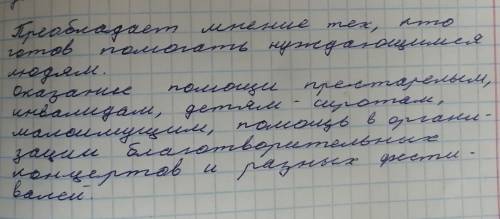 Преобладает мнение тех, кто
готов помогать нуждающимся
людям.
Оказание помощи престарелым,
инвалидам, детям-сиротам,
малоимущим, помощь в органи-
зации благотворительных
концертов и разных фести-
валей.